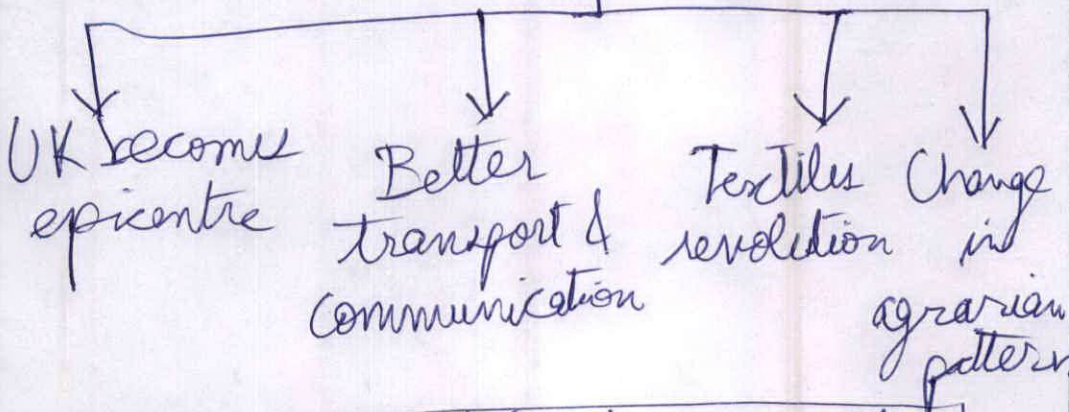 UK becomes
epicentre
Better
transport &
communication
Textiles
revolution
Change
in
agrarian
pattern